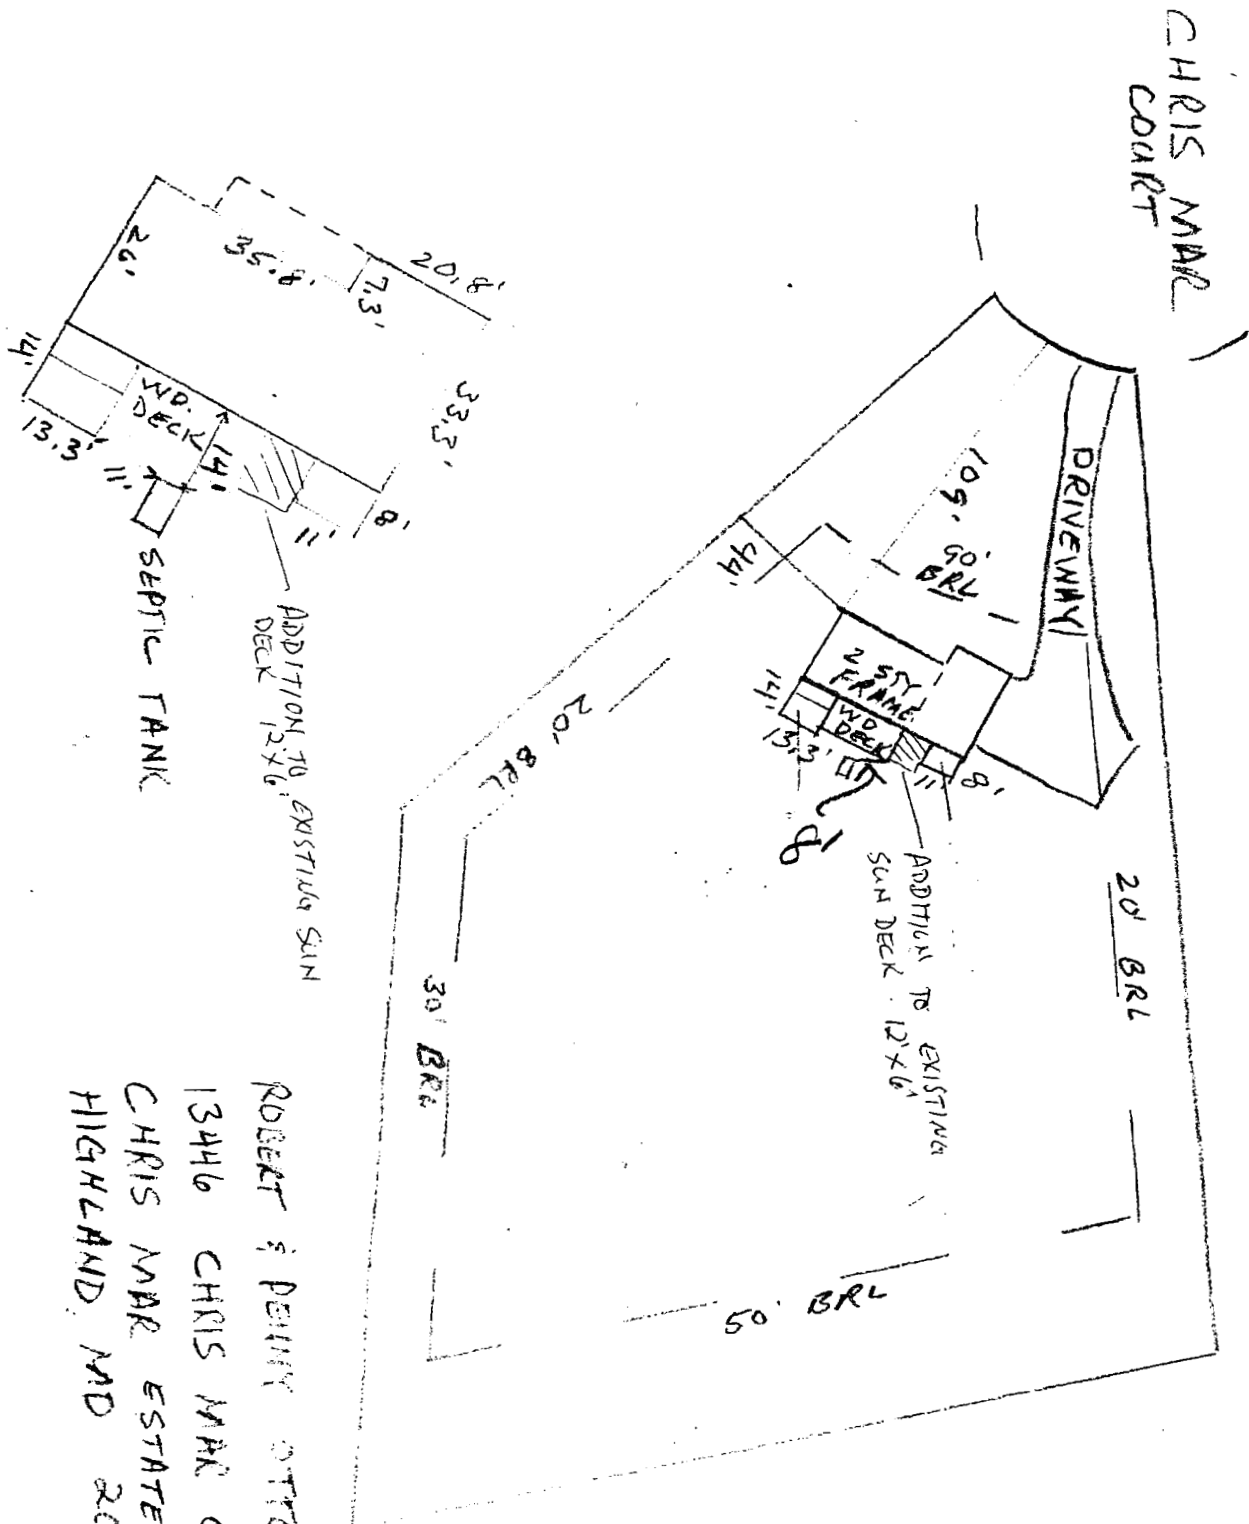 CHRIS MAR
COURT
DRIVEWAY
109'
90'
BRL
44'
2 STY
FRAME
WD
DECK
14'
13.3'
11'
8'
8'
ADDITION TO EXISTING
SUN DECK 12'X6'
20' BRL
20' BRL
30' BRL
50' BRL
20.8'
7.3'
35.8'
26'
33.3'
14'
13.3'
WD.
DECK
14'
11'
11'
8'
SEPTIC TANK
ADDITION TO EXISTING SUN
DECK 12'X6'
ROBERT & PENNY
13446 CHRIS MAR
CHRIS MAR ESTATE
HIGHLAND MD 20